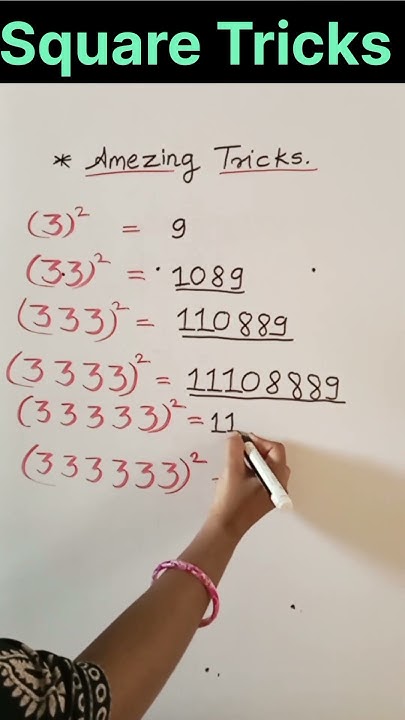 Square Tricks
* Amezing Tricks.
(3)² = 9
(33)² = 1089
(333)² = 110889
(3333)² = 11108889
(33333)² = 11
(333333)² -